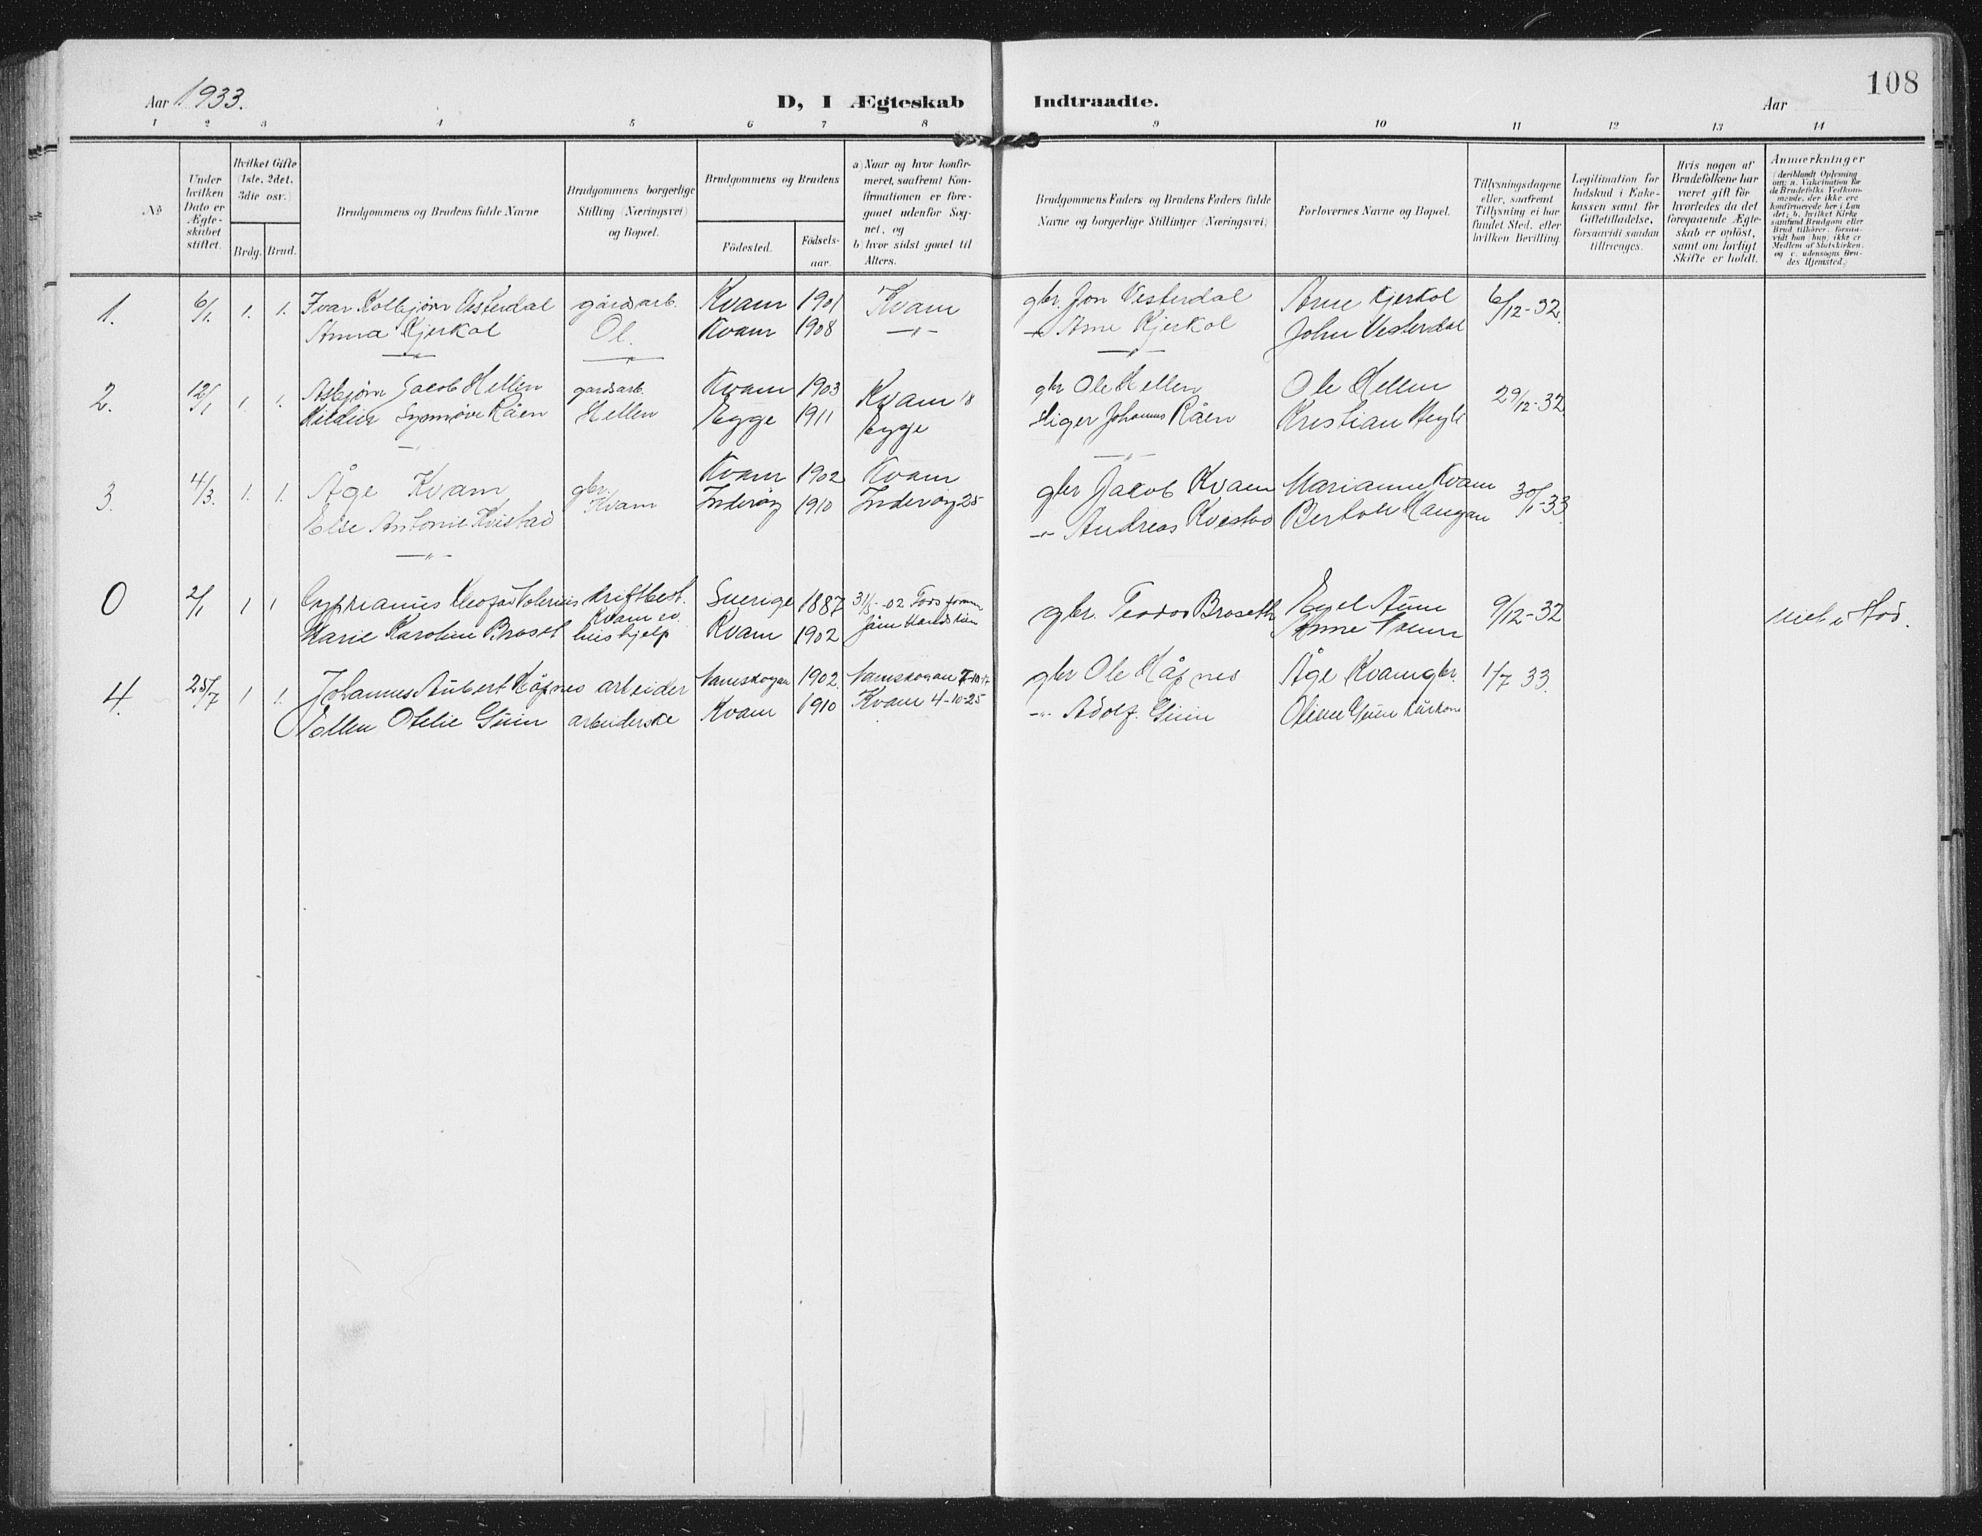 108
Aar 1933.
D, I Ægteskab
Indtraadte.
Aar
1 2 3 4 5 6 7 8
9 10 11 12 13 14
№
Under hvilken Dato er Ægteskabet stiftet.
Hvilket Gifte (1ste, 2det, 3die osv.)
Brdg. Brud.
Brudgommens og Brudens fulde Navne
Brudgommens borgerlige Stilling (Næringsvei) og Bopæl.
Brudgommens og Brudens
Fødested.
Fødselsaar.
a) Naar og hvor konfirmeret, saafremt Konfirmationen er foregaaet udenfor Sognet, og
b) hvor sidst gaaet til Alters.
Brudgommens Faders og Brudens Faders fulde Navne og borgerlige Stillinger (Næringsvei)
Forlovernes Navne og Bopæl.
Tillysningsdagene eller, saafremt Tillysning ei har fundet Sted, efter hvilken Bevilling
Legitimation for Indskud i Enkekassen samt for Giftetilladelse, forsaavidt saadan tiltrænges.
Hvis nogen af Brudefolkene har været gift før, hvorledes da det foregaaende Ægteskab er opløst, samt om lovligt Skifte er holdt.
Anmærkninger (deriblandt Oplysning om: a. Vakcination for de Brudefolks Vedkommende, der ikke ere konfirmerede her i Landet; b. hvilket Kirkesamfund Brudgom eller Brud tilhører, forsaavidt han (hun) ikke er Medlem af Statskirken, og c. udensogns Brudes Hjemsted.)
1. 6/1. 1. 1. Ivar Kolbjørn Vesterdal gårdsarb. Kvam 1901 Kvam gbr. Jon Vesterdal Arne Kjerkol 6/12-32.
Anna Kjerkol Ol. Kvam 1908 -"- -"- Arne Kjerkol John Vesterdal
2. 12/1 1. 1. Asbjørn Jacob Hellen gardsarb. Kvam 1903 Kvam 18 gbr Ole Hellen Ole Hellen 29/12-32
Synnøve Råen Hellen Egge 1911 Egge Johannes Råen Kristian
3. 4/3. 1. 1. Åge Kvam gbr. Kvam 1902 Kvam gbr Jacob Kvam Marianne Kvam 30/1-33.
Else Antonie Kvistad Kvam Inderøy 1910 Inderøy 25 -"- Andreas Kvistad Haugan
0 2/1 1 1 Cyprianus driftbest. Sverige 1887 31/5-02 gbr. Teodor Broseth Egel Aune 9/12-32
Marie Karoline Broset Kvam hushjelp Kvam 1902
4. 25/7 1 1. Johannes Aubert arbeider Namskogan 1902. Namskogan gbr Ole Åge Kvam gbr. 1/7 33.
Ellen Otelie Guin arbeiderske Kvam 1910 Kvam 4-10-25 -"- Adolf Guin Guin kårkone